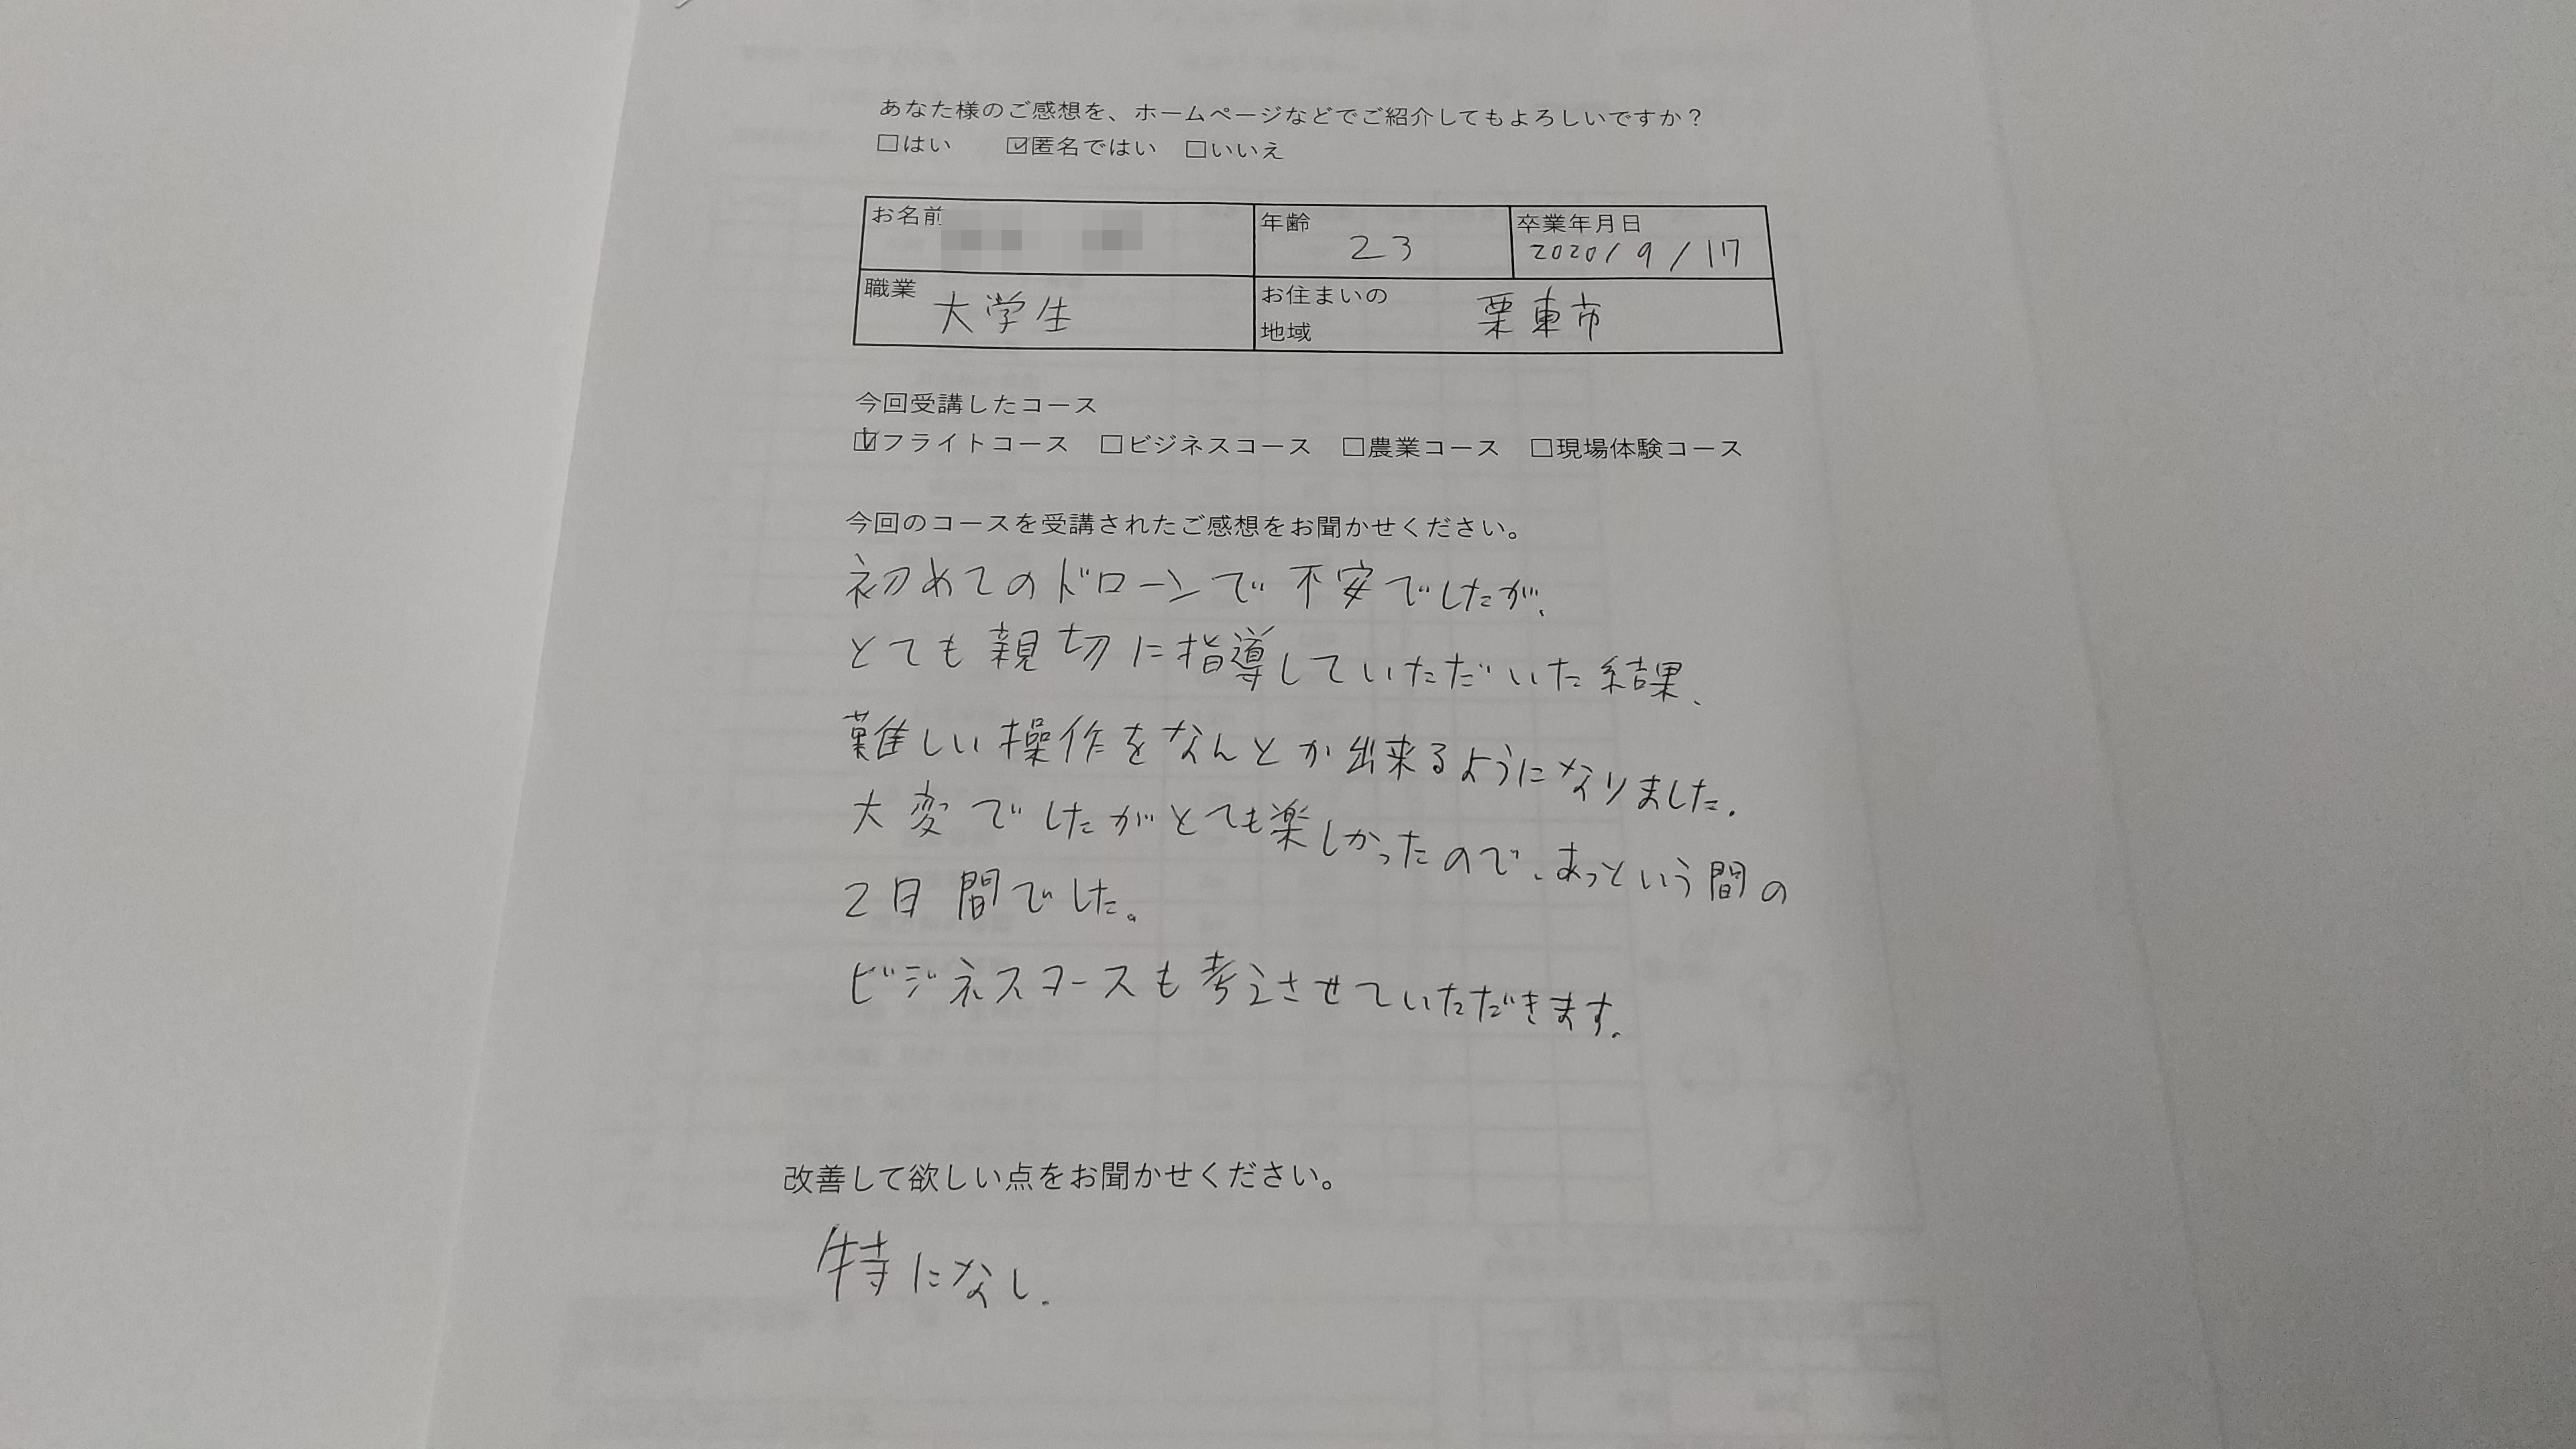 あなた様のご感想を、ホームページなどでご紹介してもよろしいですか？
□はい ☑匿名ではい □いいえ
お名前
年齢 23
卒業年月日 2020/9/17
職業 大学生
お住まいの地域 栗東市
今回受講したコース
☑フライトコース □ビジネスコース □農業コース □現場体験コース
今回のコースを受講されたご感想をお聞かせください。
初めてのドローンで不安でしたが、
とても親切に指導していただいた結果、
難しい操作をなんとか出来るようになりました。
大変でしたがとても楽しかったので、あっという間の
2日間でした。
ビジネスコースも考えさせていただきます。
改善して欲しい点をお聞かせください。
特になし.